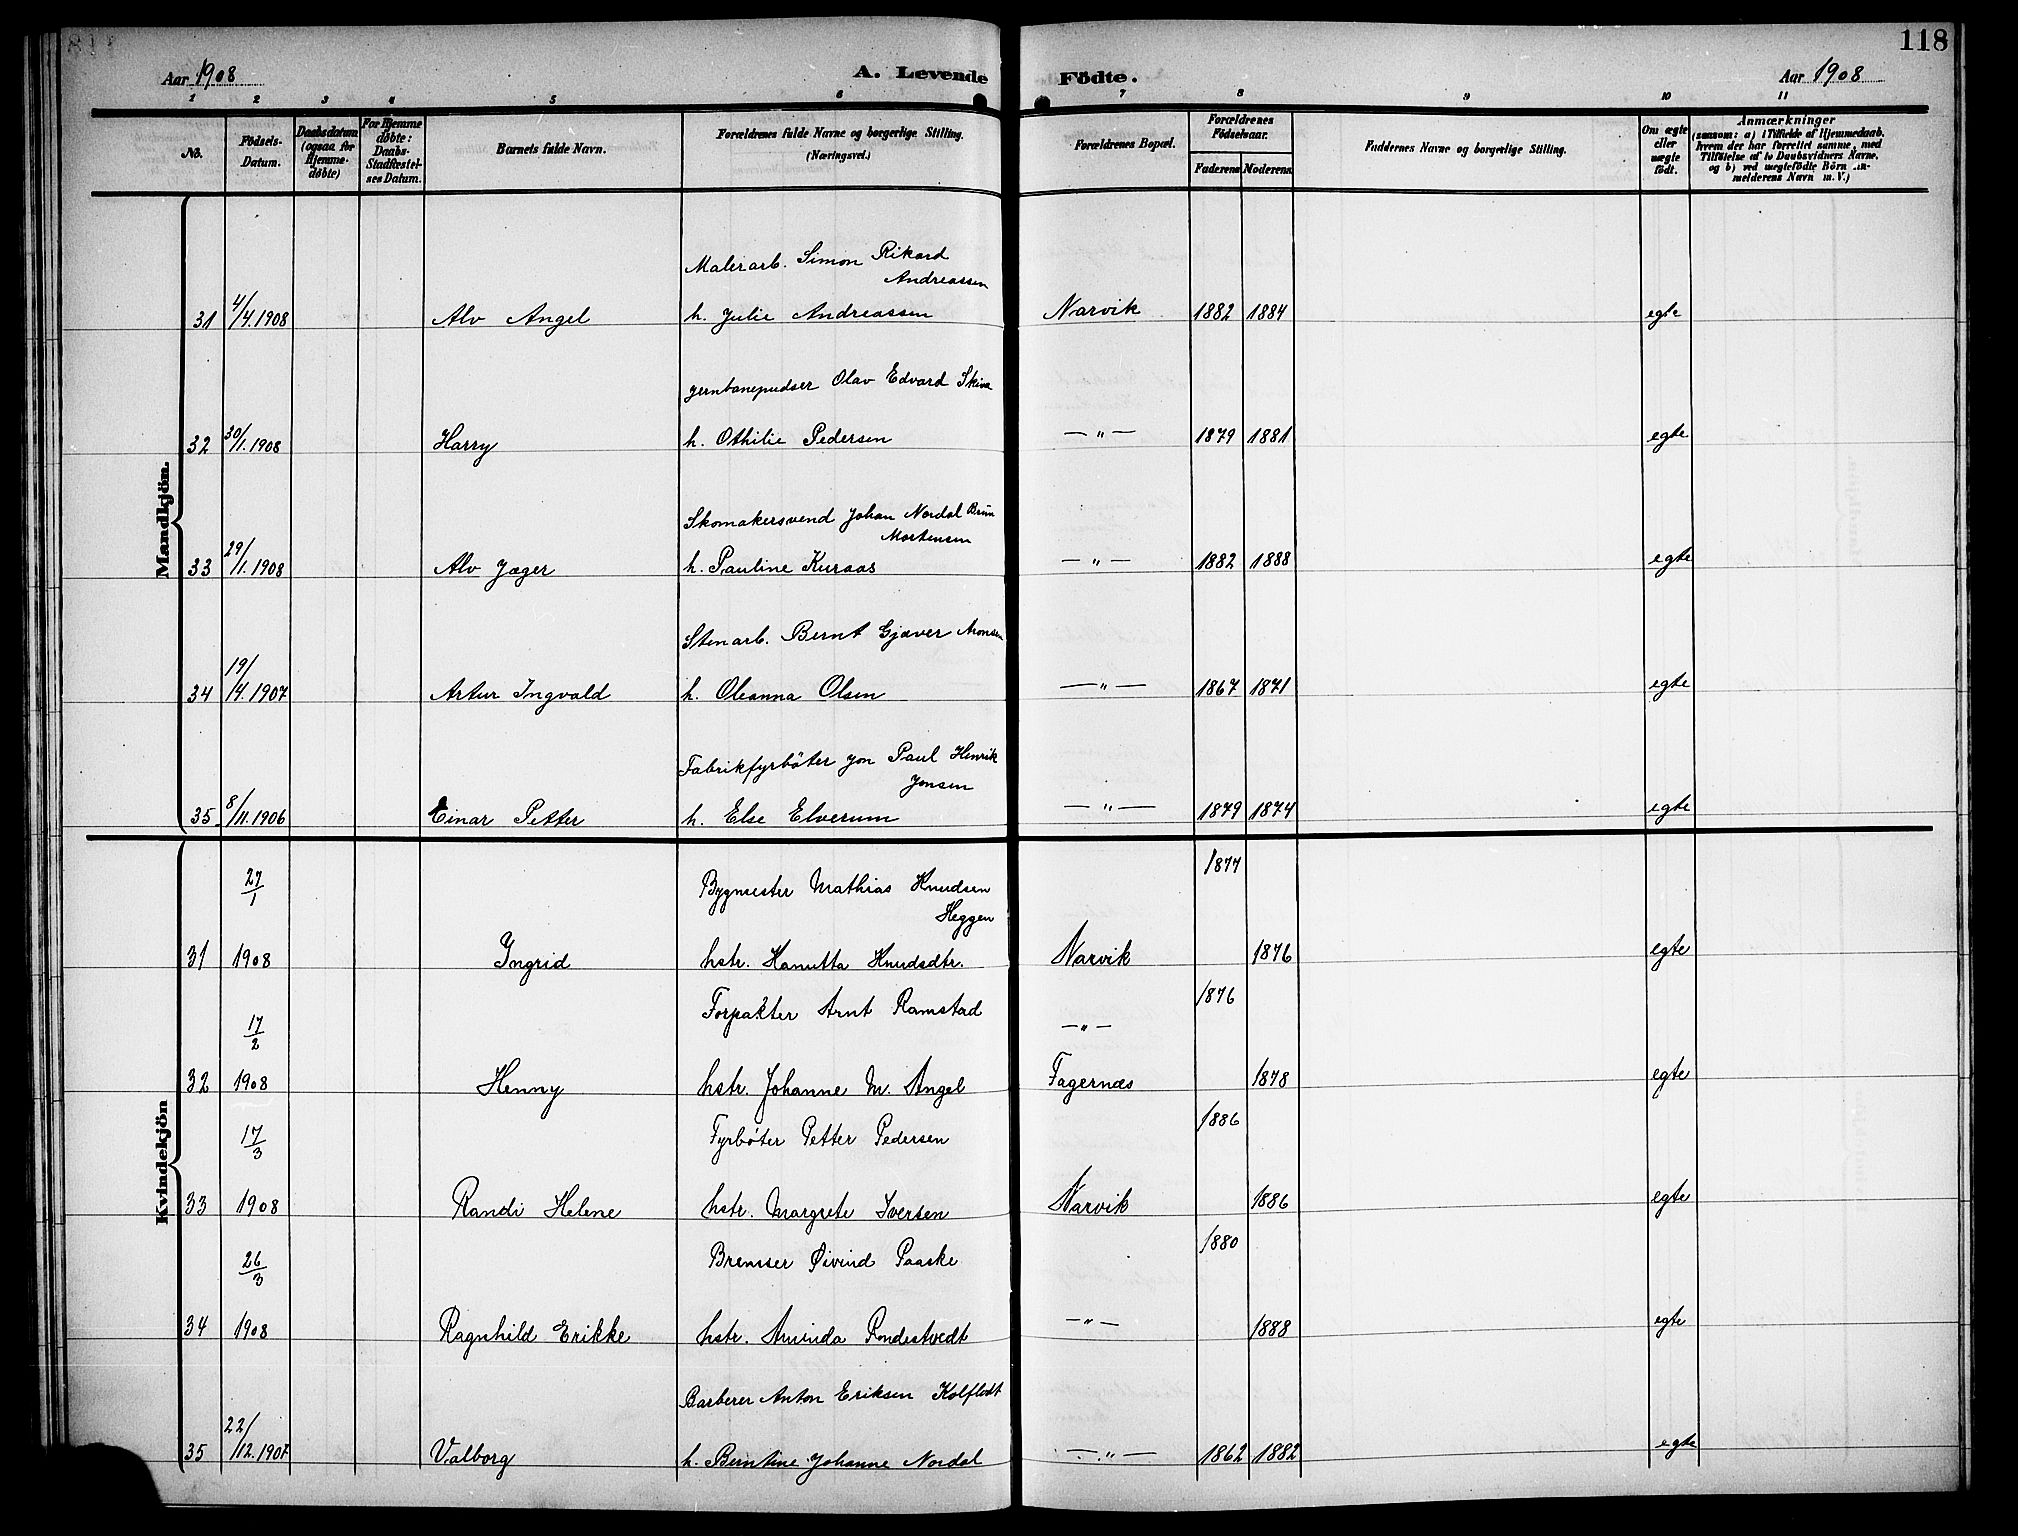 118
Aar 1908
A. Levende Födte.
Aar 1908
1 2 3 4 5 6 7 8 9 10 11
No.
Födsels-Datum.
Daabsdatum (ogsaa for Hjemme-döbte)
For Hjemme döbte: Daabs-Stadfæstel-ses Datum.
Barnets fulde Navn.
Forældrenes fulde Navne og borgerlige Stilling. (Næringsvei.)
Forældrenes Bopæl.
Forældrenes Födselsaar.
Faderens Moderens
Faddernes Navne og borgerlige Stilling.
Om ægte eller uægte födt.
Anmærkninger
(saasom: a) i Tilfælde af Hjemmedaab.
hvem der har forrettet samme, med
Tilföielse af to Daabsvidners Navne,
og b) ved uægtefödte Börn An-
melderens Navn m. V.)
Mandkjön.
Malerarb. Simon Rikard
Andreassen
31 4/4.1908 Alv Angel h. Julie Andreassen Narvik 1882 1884 egte
Jernbanepudser Olav Edvard
32 30/1.1908 Harry h. Othilie Pedersen —"— 1879 1881 egte
Skomakersvend Johan Nordal Brun
Mortensen
33 29/1.1908 Alv Jæger h. Pauline Kuraas —"— 1882 1888 egte
Stenarb. Bernt Gjæver Aronsen
34 19/4.1907 Artur Ingvald h. Oleanna Olsen —"— 1867 1871 egte
Fabrikfyrbøter Jon Paul Henrik
Jonsen
35. 8/11.1906 Einar Petter h. Else Elverum —"— 1879 1874 egte
Kvindekjön
27/1 Bygmester Mathias Knudsen 1877
Heggen
31 1908 Ingrid hstr. Knudsdtr. Narvik 1876 egte
17/2 Forpakter Arnt Ramstad —"— 1876
32 1908 Henny hstr. Johanne M. Angel Fagernæs 1878 egte
17/3 Fyrbøter Petter Pedersen 1886
33 1908 Randi Helene hstr. Margrete Iversen Narvik 1886 egte
26/3 Bremser Øivind Paaske 1880
34 1908 Ragnhild Erikke hstr. Aminda Rondestvedt —"— 1888 egte
Barberer Anton Eriksen Kolflaat
35 22/12.1907. Valborg h. Berntine Johanne Nordal —"— 1862 1882 egte